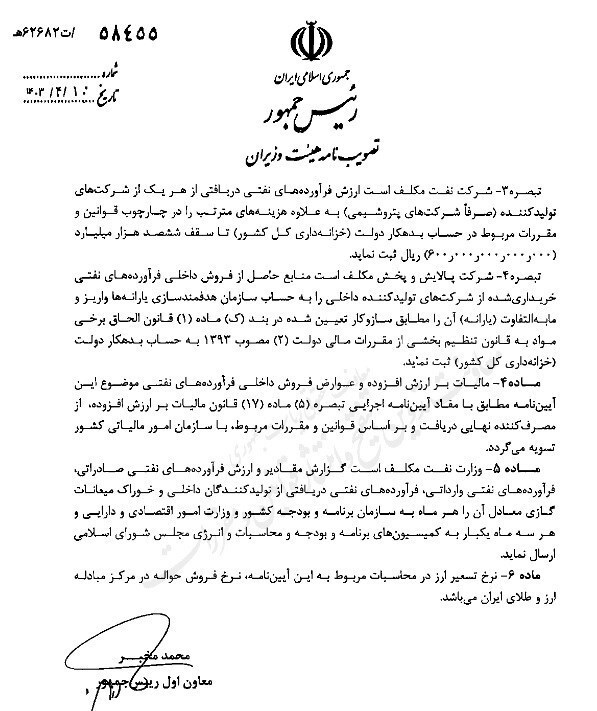 ۵۸۴۵۵ /ت۶۲۶۸۲هـ
جمهوری اسلامی ایران
رئیس جمهور
تصویب نامه هیئت وزیران
شماره
تاریخ ۱۴۰۳/۴/۱۰
تبصره۳- شرکت نفت مکلف است ارزش فرآورده‌های نفتی دریافتی از هر یک از شرکت‌های
تولیدکننده (صرفاً شرکت‌های پتروشیمی) به علاوه هزینه‌های مترتب را در چارچوب قوانین و
مقررات مربوط در حساب بدهکار دولت (خزانه‌داری کل کشور) تا سقف ششصد هزار میلیارد
(۶۰۰ر۰۰۰ر۰۰۰ر۰۰۰ر۰۰۰) ریال ثبت نماید.
تبصره۴- شرکت پالایش و پخش مکلف است منابع حاصل از فروش داخلی فرآورده‌های نفتی
خریداری‌شده از شرکت‌های تولیدکننده داخلی را به حساب سازمان هدفمندسازی یارانه‌ها واریز و
مابه‌التفاوت (یارانه) آن را مطابق سازوکار تعیین شده در بند (ک) ماده (۱) قانون الحاق برخی
مواد به قانون تنظیم بخشی از مقررات مالی دولت (۲) مصوب ۱۳۹۳ به حساب بدهکار دولت
(خزانه‌داری کل کشور) ثبت نماید.
ماده۴- مالیات بر ارزش افزوده و عوارض فروش داخلی فرآورده‌های نفتی موضوع این
آیین‌نامه مطابق با مفاد آیین‌نامه اجرایی تبصره (۵) ماده (۱۷) قانون مالیات بر ارزش افزوده، از
مصرف‌کننده نهایی دریافت و بر اساس قوانین و مقررات مربوط، با سازمان امور مالیاتی کشور
تسویه می‌گردد.
ماده ۵- وزارت نفت مکلف است گزارش مقادیر و ارزش فرآورده‌های نفتی صادراتی،
فرآورده‌های نفتی وارداتی، فرآورده‌های نفتی دریافتی از تولیدکنندگان داخلی و خوراک میعانات
گازی معادل آن را هر ماه به سازمان برنامه و بودجه کشور و وزارت امور اقتصادی و دارایی و
هر سه ماه یکبار به کمیسیون‌های برنامه و بودجه و محاسبات و انرژی مجلس شورای اسلامی
ارسال نماید.
ماده ۶- نرخ تسعیر ارز در محاسبات مربوط به این آیین‌نامه، نرخ فروش حواله در مرکز مبادله
ارز و طلای ایران می‌باشد.
محمد مخبر
معاون اول رییس‌جمهور